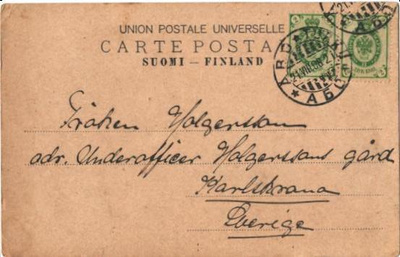 UNION POSTALE UNIVERSELLE
CARTE POSTA
SUOMI - FINLAND
ABO
АБО
Fröken Holgersson
adr. Underofficer Holgerssons gård
Karlskrona
Sverige